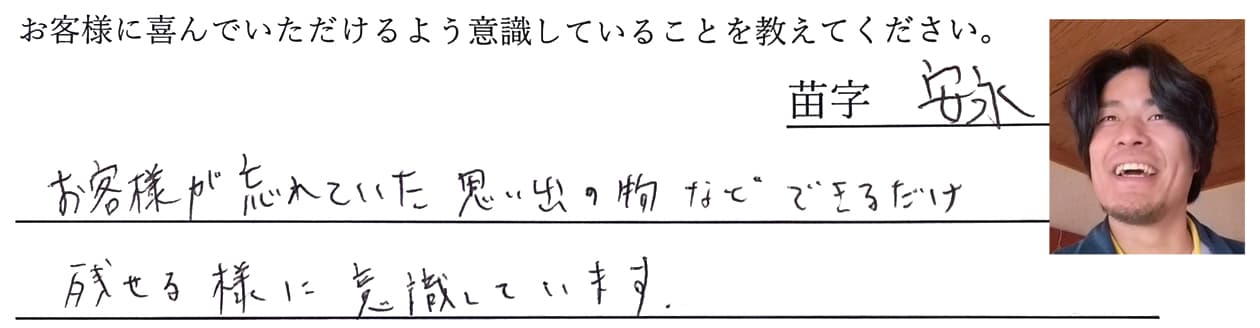 お客様に喜んでいただけるよう意識していることを教えてください。
苗字 安永
お客様が忘れていた思い出の物などできるだけ
残せる様に意識しています.